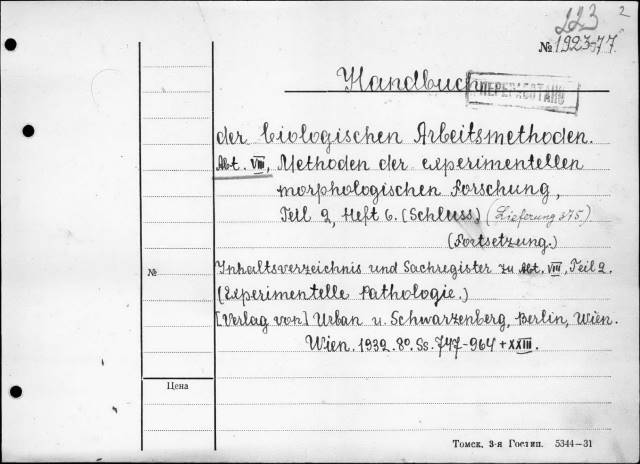 223 2
№ 1923-77.
Handbuch
ПЕРЕРАБОТАНО
der biologischen Arbeitsmethoden.
Abt. VIII, Methoden der experimentellen
morphologischen Forschung,
Teil 2, Heft 6. (Schluss) (Lieferung 375)
(Fortsetzung.)
№ Inhaltsverzeichnis und Sachregister zu Abt. VIII, Teil 2.
(Experimentelle Pathologie.)
[Verlag von] Urban u. Schwarzenberg, Berlin, Wien.
Wien. 1932. 8º. Ss. 747-964 + XXIII.
Цена
Томск. 3-я Гостип. 5344—31